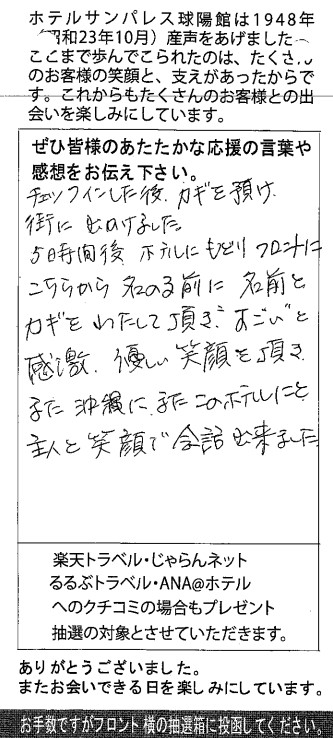 ホテルサンパレス球陽館は1948年
(昭和23年10月)産声をあげました
ここまで歩んでこられたのは、たくさん
のお客様の笑顔と、支えがあったからで
す。これからもたくさんのお客様との出
会いを楽しみにしています。
ぜひ皆様のあたたかな応援の言葉や
感想をお伝え下さい。
チェックインした後、カギを預け、
街に出かけました
5時間後、ホテルにもどりフロントに
こちらから名のる前に名前と
カギをわたして頂き、すごいと
感激、優しい笑顔を頂き
また沖縄に、またこのホテルにと
主人と笑顔で会話出来ました
楽天トラベル・じゃらんネット
るるぶトラベル・ANA@ホテル
へのクチコミの場合もプレゼント
抽選の対象とさせていただきます。
ありがとうございました。
またお会いできる日を楽しみにしています。
お手数ですがフロント横の抽選箱に投函してください。